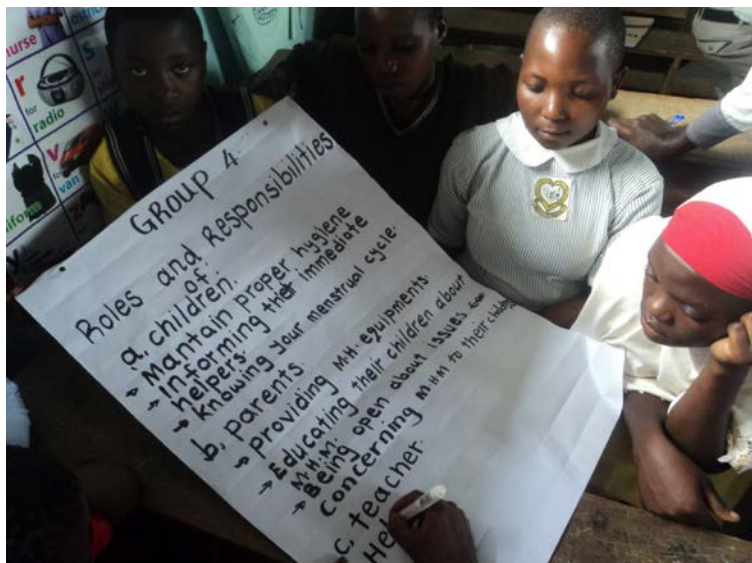 nurse
r
for
radio
s
v
for
van
GROUP 4.
Roles and Responsibilities
of
a, children.
Mantain proper hygiene
Informing immediate
helpers.
Knowing your menstrual cycle.
b, parents.
providing M.H. equipments.
Educating their children about
M.H.M.
Being open about issues
Concerning MHM to their
c, teacher.